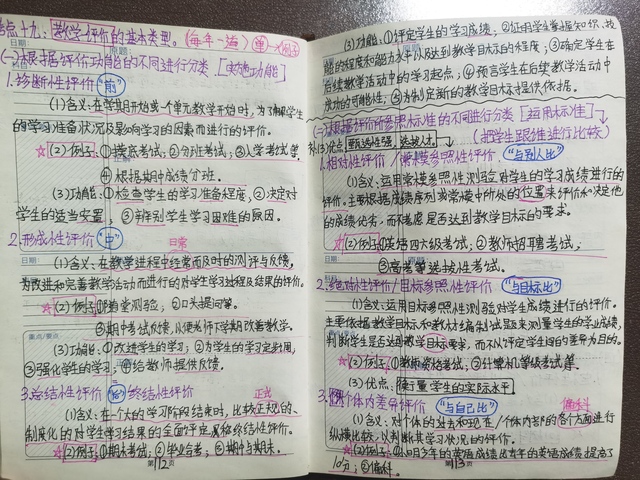 考点十九：教学评价的基本类型。(每年一道) 单一 例子
(一)根据评价功能的不同进行分类 [实施功能]
1.诊断性评价 "前"
(1)含义：在学期开始或一个单元教学开始时,为了解学生
的学习准备状况及影响学习的因素而进行的评价。
☆(2)例子：①摸底考试；②分班考试；③入学考试等.
④根据期中成绩分班.
(3)功能：①检查学生的学习准备程度,②决定对
学生的适当安置 ③辨别学生学习困难的原因.
2.形成性评价 "中" 日常
(1)含义：在教学进程中经常而及时的测评与反馈,
为改进和完善教学活动而进行的对学生学习过程及结果的评价.
☆(2)例子：①随堂测验；②口头提问等.
③期中考试反馈,以便老师下学期改善教学.
重点/要点：
(3)功能：①改进学生的学习；②为学生的学习定步调；
③强化学生的学习；④给教师提供反馈.
3.总结性评价 "后" 终结性评价 正式
(1)含义：在一个大的学习阶段结束时,比较正规的、
制度化的对学生学习结果的全面评定,属称终结性评价.
☆(2)例子：①期末考试；②毕业会考；③期中与期末.
第112页
(3)功能：①评定学生的学习成绩；②证明学生掌握知识、技
能的程度和能力水平以及达到教学目标的程度；③确定学生在
后续教学活动中的学习起点；④预言学生在后续教学活动中
成功的可能性；⑤为制定新的教学目标提供依据.
(二)根据评价所参照标准的不同进行分类 [运用标准]
(把学生跟谁进行比较)
(3)优点 甄选性强,选拔人才.
1.相对性评价/常模参照性评价. "与别人比"
(1)含义：运用常模参照性测验对学生的学习成绩进行的
评价.主要根据成绩序列或常模中所处的位置来评价和决定他
的成绩优劣,而不考虑是否达到教学目标的要求.
☆(2)例子：①英语四六级考试；②教师招聘考试,
③高考等选拔性考试.
2.绝对性评价/目标参照性评价 "与目标比"
(1)含义：运用目标参照性测验对学生成绩进行的评价.
主要依据教学目标和教材编制试题来测量学生的学业成绩,
判断学生是否达到教学目标要求,而不以评定学生间的差异为目的.
☆(2)例子：①教师资格考试；②计算机等级考试等.
(3)优点：衡量学生的实际水平
3.个体内差异评价 "与自己比" 偏科
(1)含义：对个体的过去和现在/个体内部的各个方面进行
纵横比较,以判断其学习状况的评价.
☆(2)例子：①小明今年的英语成绩比去年的英语成绩提高了
10分；②偏科.
第113页